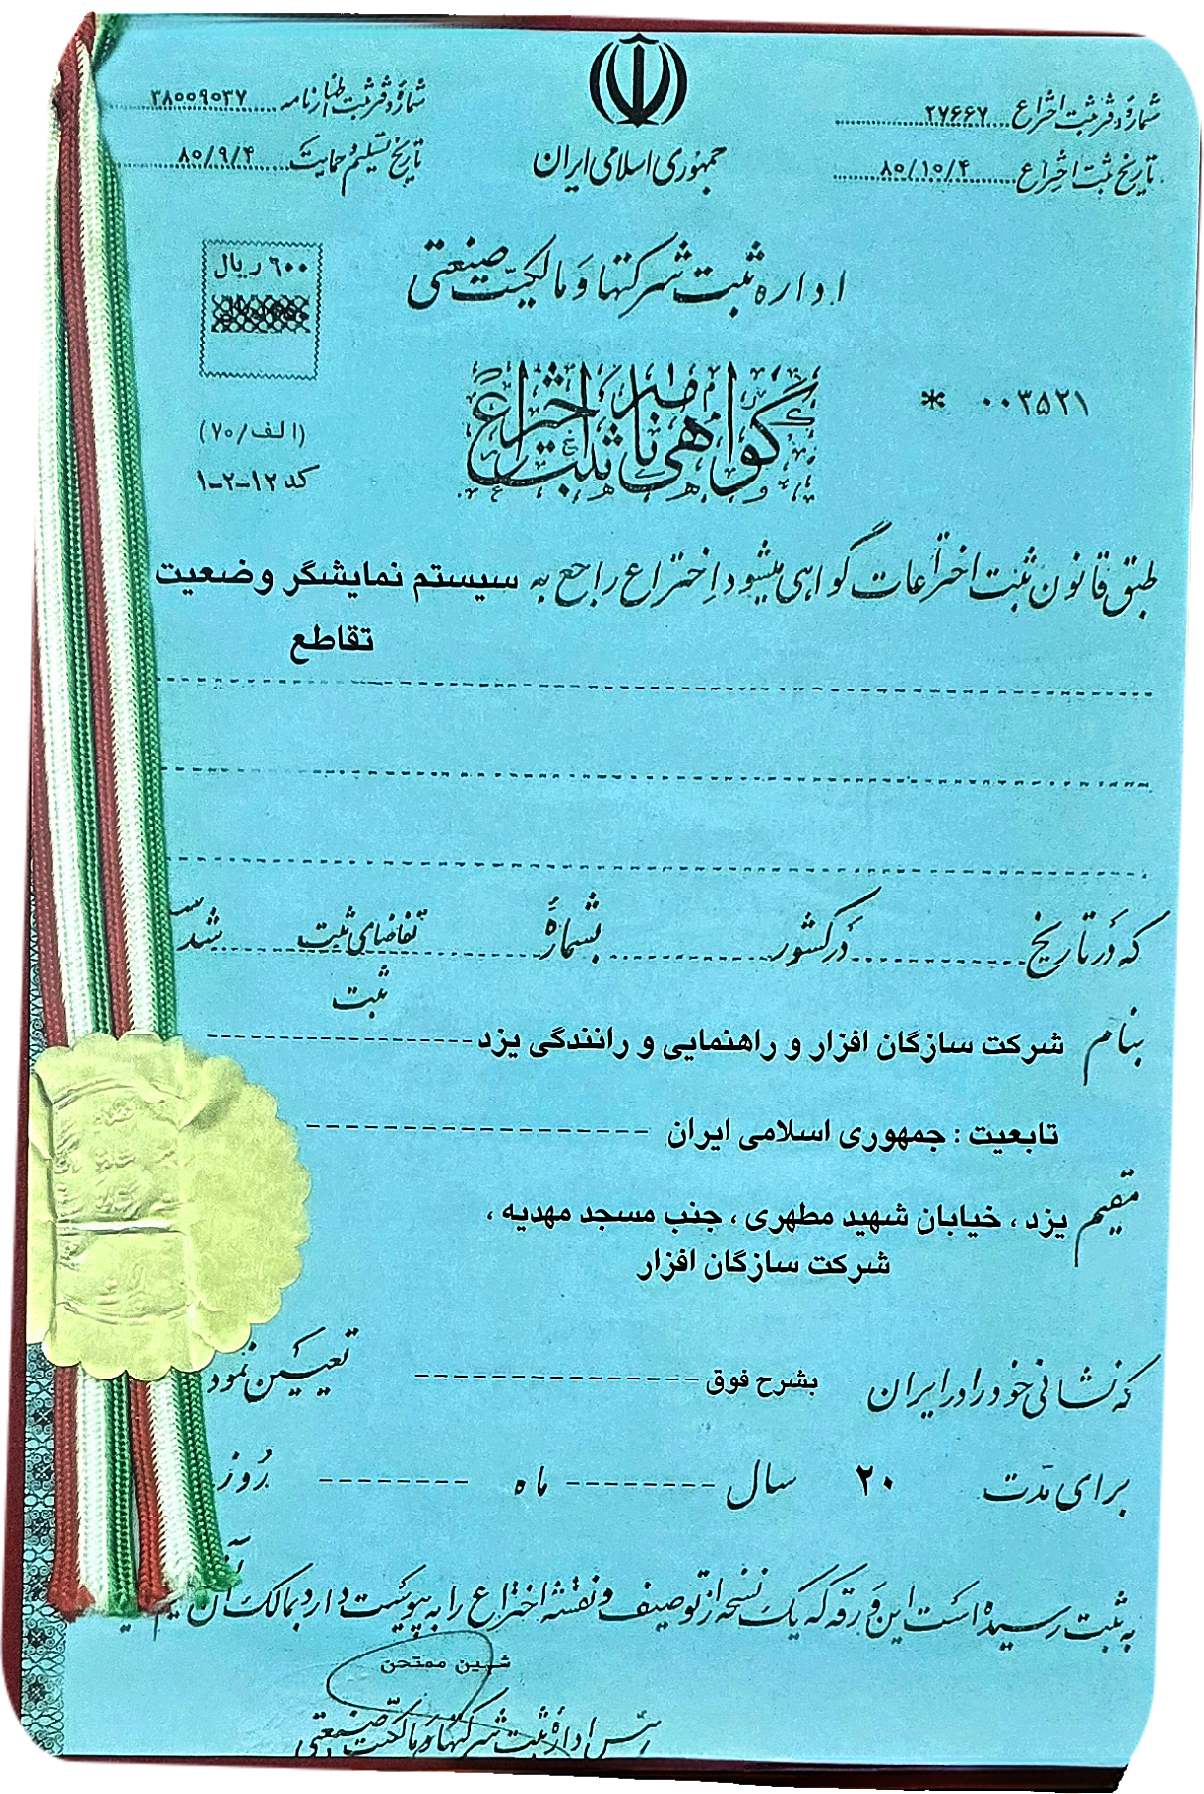 شماره دفتر ثبت اختراع ۲۷۶۶۷
تاریخ ثبت اختراع ۸۰/۱۰/۴
جمهوری اسلامی ایران
شماره دفتر ثبت اظهارنامه ۳۸۰۰۹۰۳۷
تاریخ تسلیم و حمایت ۸۰/۹/۴
اداره ثبت شرکتها و مالکیت صنعتی
۶۰۰ ریال
گواهی نامه ثبت اختراع
* ۰۰۳۵۲۱
(الف/۷۰)
کد ۱۲-۲-۱
طبق قانون ثبت اختراعات گواهی میشود اختراع راجع به سیستم نمایشگر وضعیت
تقاطع
که در تاریخ در کشور بشماره تقاضای ثبت شده
ثبت
بنام شرکت سازگان افزار و راهنمایی و رانندگی یزد
تابعیت : جمهوری اسلامی ایران
مقیم یزد ، خیابان شهید مطهری ، جنب مسجد مهدیه ،
شرکت سازگان افزار
که نشانی خود را در ایران بشرح فوق تعیین نمود
برای مدت ۲۰ سال ماه روز
به ثبت رسیده است این ورقه که یک نسخه از توصیف و نقشه اختراع را به پیوست دارد بمالک آن
ممتحن
رئیس اداره ثبت شرکتها و مالکیت صنعتی